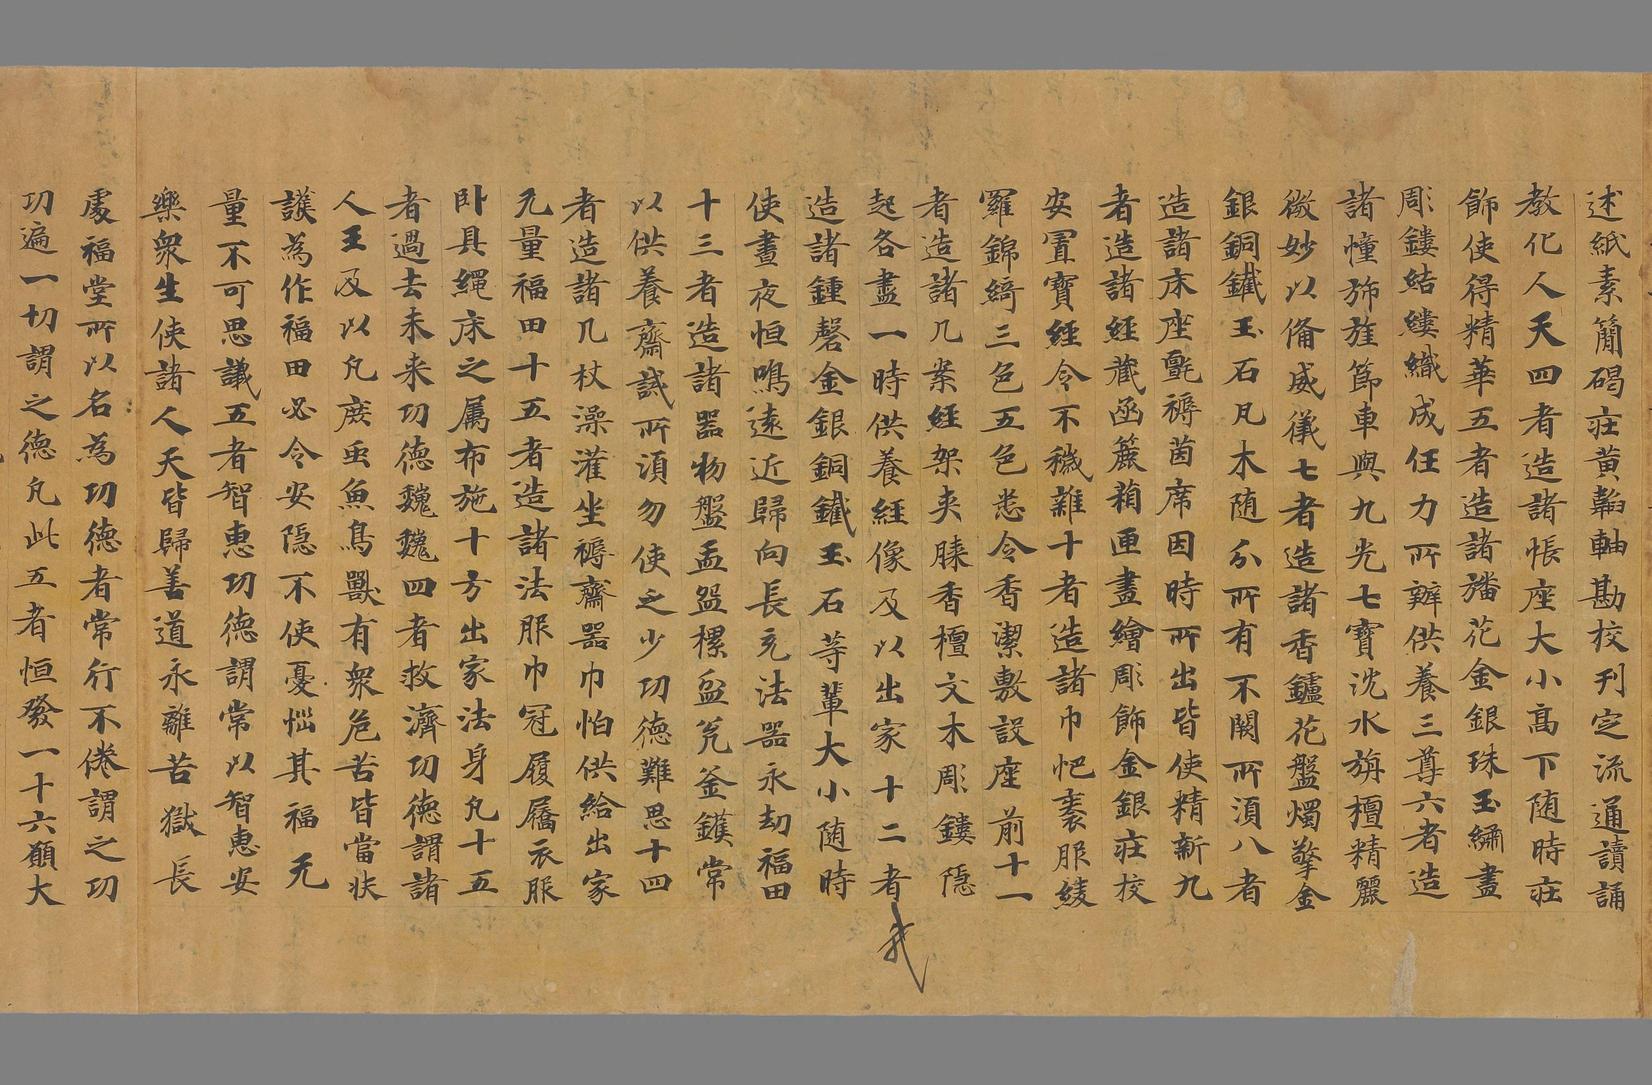 述紙素簡碣莊黃韜軸勘校刊定流通讀誦
教化人天四者造諸帳座大小高下随時莊
飾使得精華五者造諸旛花金銀珠玉繡畫
彫鏤結縷織成任力所辦供養三尊六者造
諸幢旆旌節車輿九光七寶沈水旃檀精麗
微妙以俻威儀七者造諸香鑪花盤燭擎金
銀銅鐵玉石凡木随分所有不闕所湏八者
造諸床座氈褥茵席因時所出皆使精新九
者造諸經藏函簏箱匣畫繪彫飾金銀莊校
安置寶經令不穢雜十者造諸巾帊袠服綾
羅錦綺三色五色悉令香潔敷設座前十一
者造諸几案經架夾膝香檀文木彫鏤隱
起各盡一時供養經像及以出家十二者
造諸鍾磬金銀銅鐵玉石等輩大小随時
使晝夜恒鳴遠近歸向長充法器永劫福田
十三者造諸器物盤盂盌樏盆瓮釜鑊常
以供養齋誡所湏勿使乏少功德難思十四
者造諸几杖澡灌坐褥齋器巾怕供給出家
无量福田十五者造諸法服巾冠履屩衣服
卧具繩床之属布施十方出家法身凡十五
者過去未来功德巍巍四者救濟功德謂諸
人王及以凡庶虫魚鳥獸有衆危苦皆當扶
護為作福田必令安隱不使憂惱其福无
量不可思議五者智惠功德謂常以智惠安
樂衆生使諸人天皆歸善道永離苦獄長
處福堂所以名為功德者常行不倦謂之功
功遍一切謂之德凡此五者恒發一十六願大